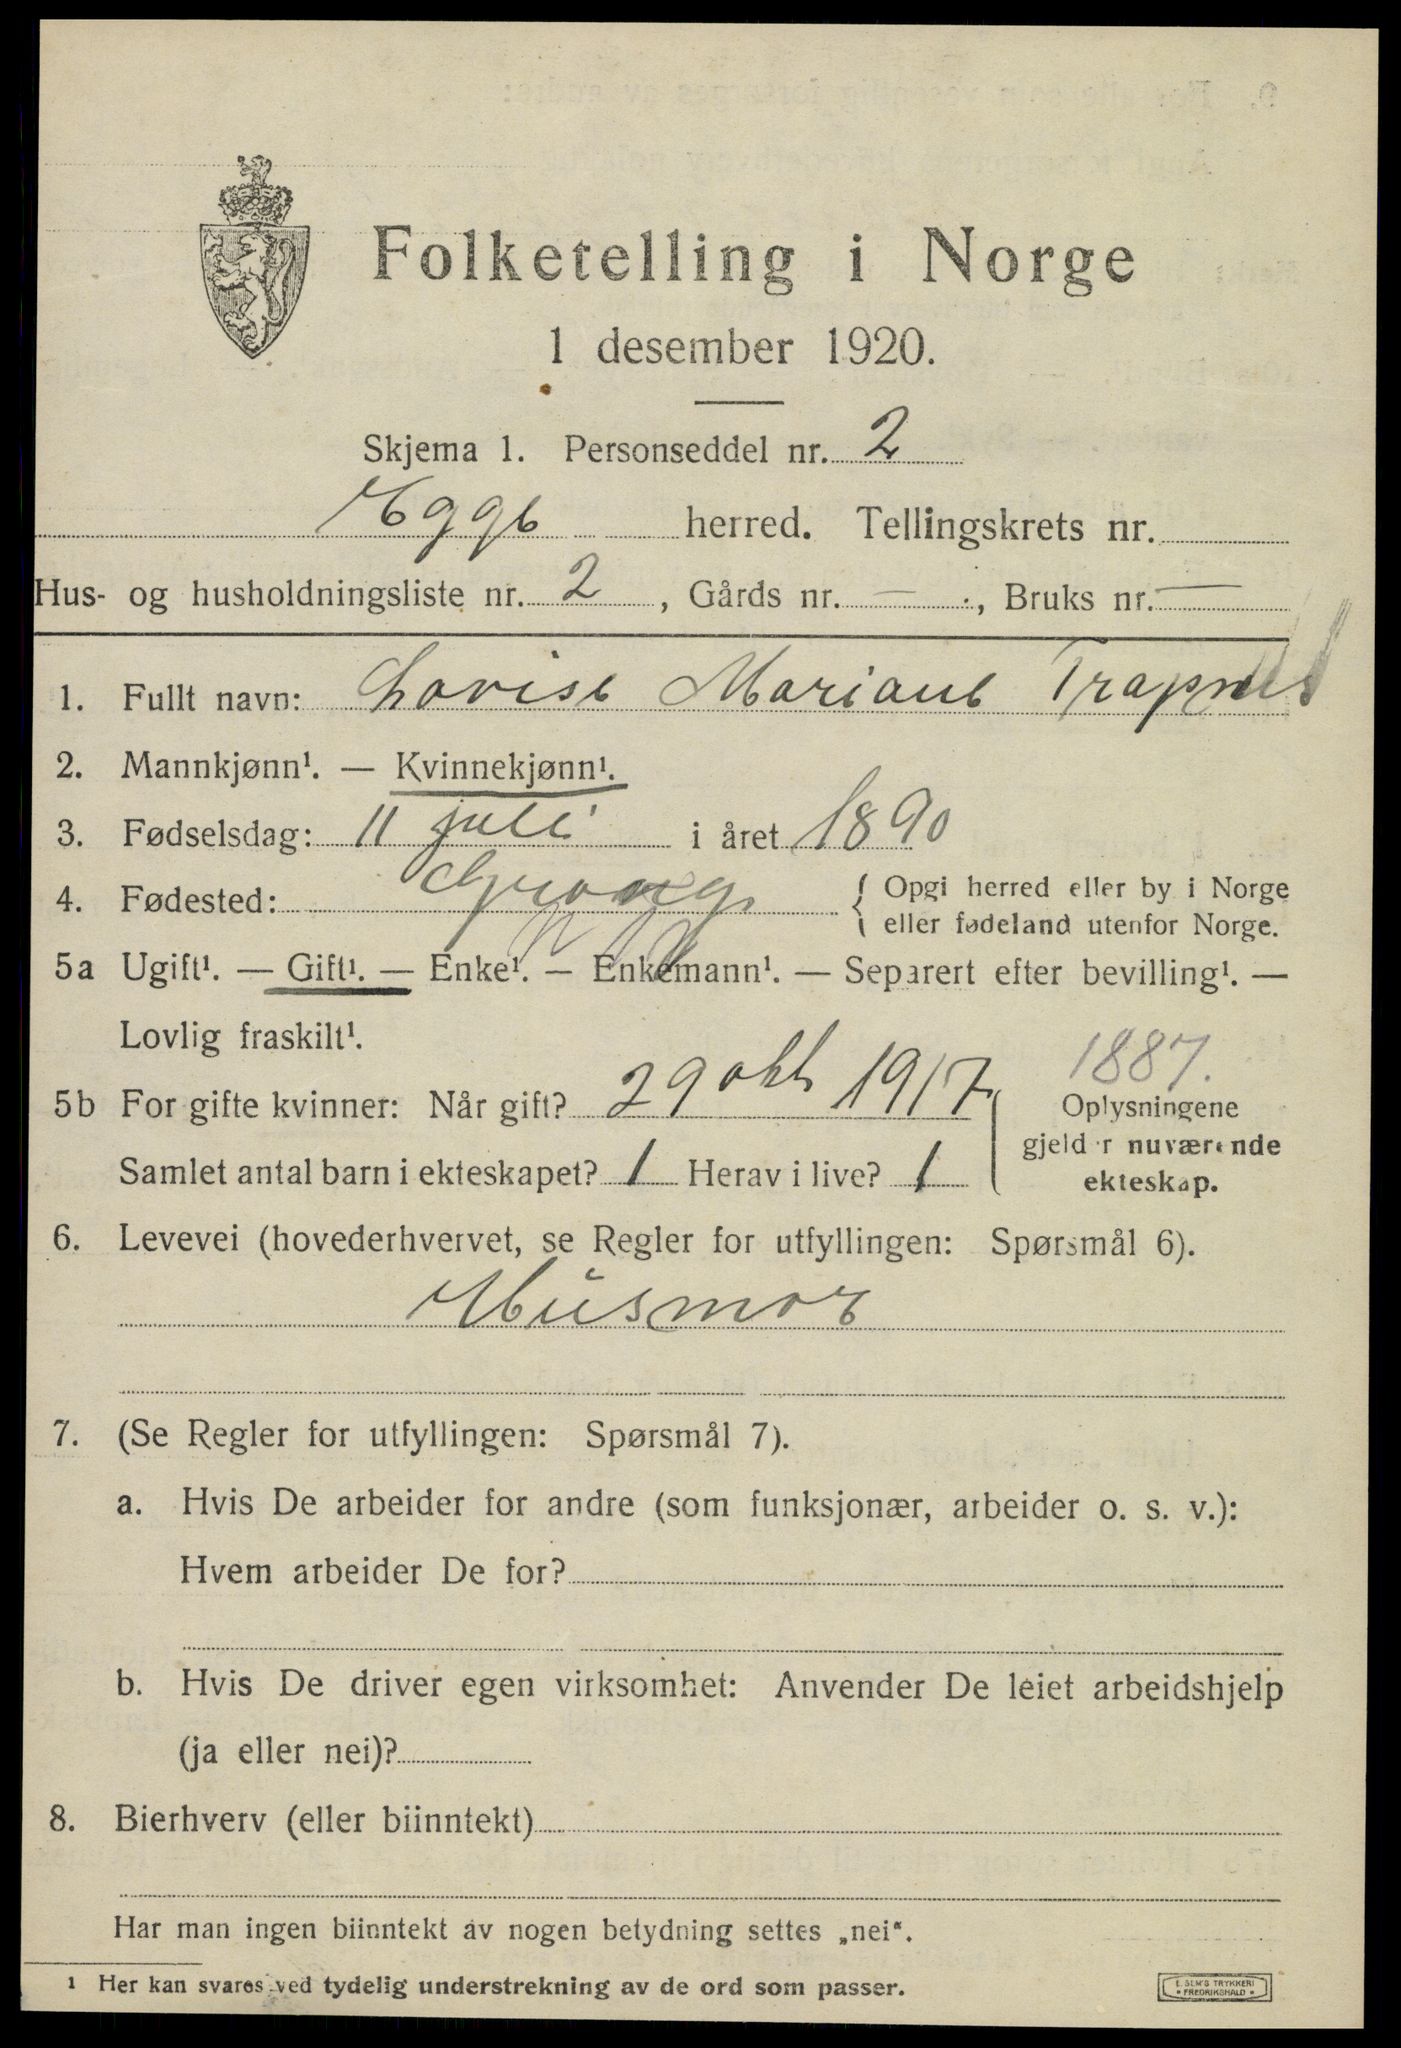 Folketelling i Norge
1 desember 1920.
Skjema 1. Personseddel nr. 2
Egge herred. Tellingskrets nr.
Hus- og husholdningsliste nr. 2, Gårds nr. —, Bruks nr. —
1. Fullt navn: Lovise Mariane Trapnes
2. Mannkjønn¹. — Kvinnekjønn¹.
3. Fødselsdag: 11 juli i året 1890
4. Fødested: Grong { Opgi herred eller by i Norge
eller fødeland utenfor Norge.
5a Ugift¹. — Gift¹. — Enke¹. — Enkemann¹. — Separert efter bevilling¹. —
Lovlig fraskilt¹.
1887.
5b For gifte kvinner: Når gift? 29 okt 1917
Samlet antal barn i ekteskapet? 1 Herav i live? 1
Oplysningene
gjelder nuværende
ekteskap.
6. Levevei (hovederhvervet, se Regler for utfyllingen: Spørsmål 6).
Husmor
7. (Se Regler for utfyllingen: Spørsmål 7).
a. Hvis De arbeider for andre (som funksjonær, arbeider o. s. v.):
Hvem arbeider De for?
b. Hvis De driver egen virksomhet: Anvender De leiet arbeidshjelp
(ja eller nei)?
8. Bierhverv (eller biinntekt)
Har man ingen biinntekt av nogen betydning settes „nei“.
¹ Her kan svares ved tydelig understrekning av de ord som passer.
E. SEM'S TRYKKERI
* FREDRIKSHALD *